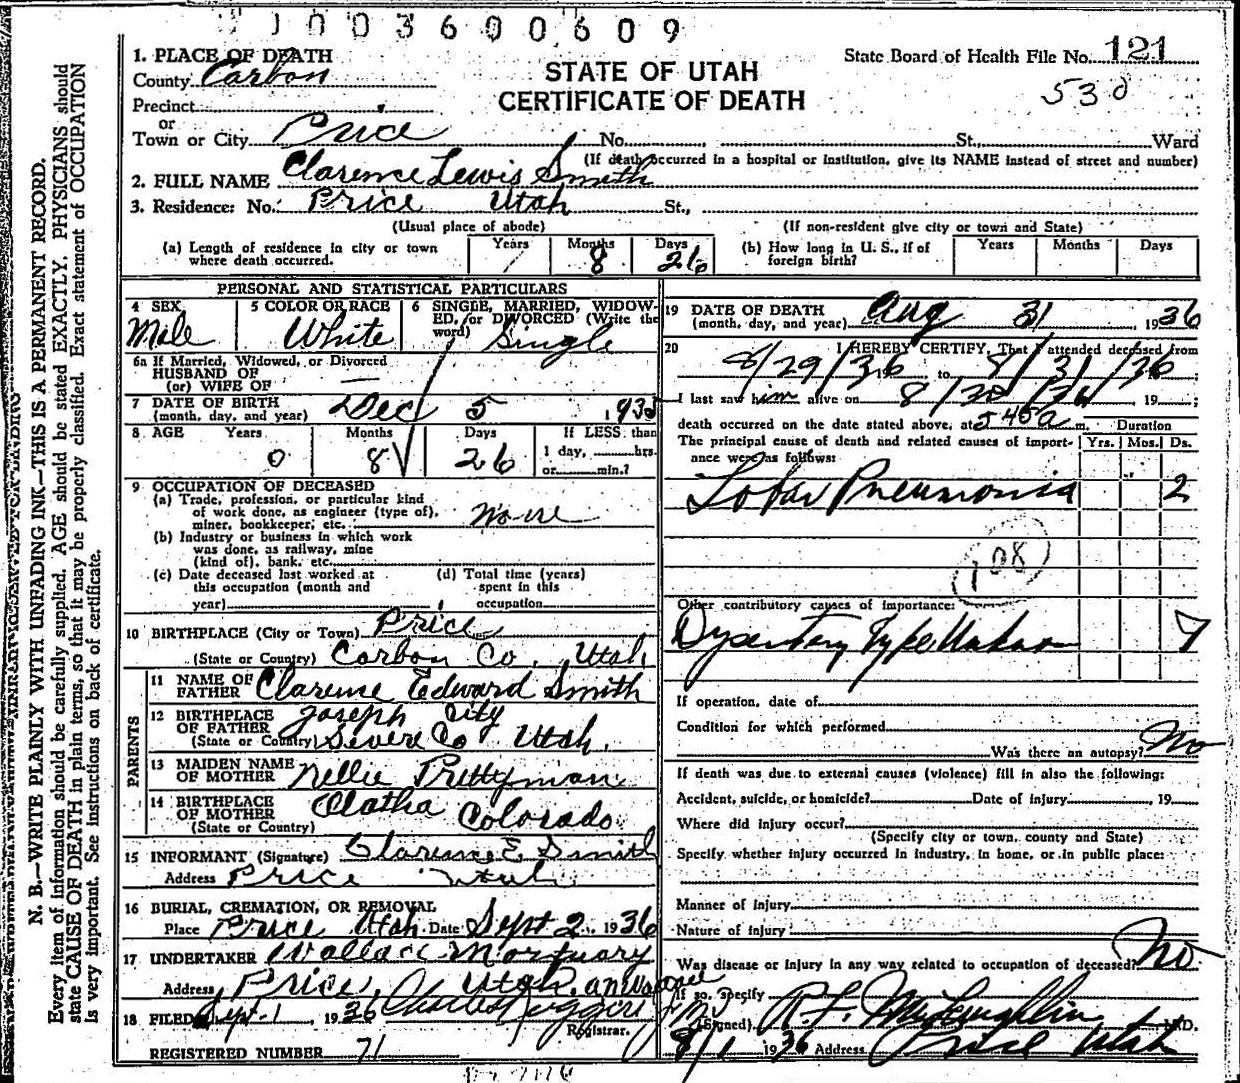 1003600609
1. PLACE OF DEATH
County Carbon
State Board of Health File No. 121
STATE OF UTAH
CERTIFICATE OF DEATH
530
Precinct
or
Town or City Price No. St., Ward
(If death occurred in a hospital or institution, give its NAME instead of street and number)
2. FULL NAME Clarence Lewis Smith
3. Residence: No. Price Utah St.,
(Usual place of abode) (If non-resident give city or town and State)
(a) Length of residence in city or town where death occurred. Years / Months 8 Days 26
(b) How long in U. S., if of foreign birth? Years Months Days
PERSONAL AND STATISTICAL PARTICULARS
4 SEX Male
5 COLOR OR RACE White
6 SINGLE, MARRIED, WIDOWED, or DIVORCED (Write the word) Single
6a If Married, Widowed, or Divorced
HUSBAND OF
(or) WIFE OF —
7 DATE OF BIRTH
(month, day, and year) Dec 5 1935
8 AGE Years 0 Months 8 Days 26 If LESS than 1 day, hrs. or min.?
9 OCCUPATION OF DECEASED
(a) Trade, profession, or particular kind
of work done, as engineer (type of),
miner, bookkeeper, etc. None
(b) Industry or business in which work
was done, as railway, mine
(kind of), bank, etc.
(c) Date deceased last worked at
this occupation (month and
year)
(d) Total time (years)
spent in this
occupation
10 BIRTHPLACE (City or Town) Price
(State or Country) Carbon Co. Utah
PARENTS
11 NAME OF
FATHER Clarence Edward Smith
12 BIRTHPLACE
OF FATHER Joseph City
(State or Country) Severe Co Utah.
13 MAIDEN NAME
OF MOTHER Nellie Prettyman
14 BIRTHPLACE
OF MOTHER Olatha Colorado
(State or Country)
15 INFORMANT (Signature) Clarence E. Smith
Address Price Utah
16 BURIAL, CREMATION, OR REMOVAL
Place Price Utah Date Sept 2, 1936
17 UNDERTAKER Wallace Mortuary
Address Price, Utah.
18 FILED Sept. 1, 1936
Registrar.
REGISTERED NUMBER 71
19 DATE OF DEATH
(month, day, and year) Aug 31, 1936
20 I HEREBY CERTIFY, That I attended deceased from
8/29/36 to 8/31/36;
I last saw him alive on 8/30/36, 19 ;
death occurred on the date stated above, at 545a m. Duration
The principal cause of death and related causes of importance were as follows: Yrs. Mos. Ds.
Lobar Pneumonia 2
108
Other contributory causes of importance:
Dysentery Type Unknown 7
If operation, date of
Condition for which performed
Was there an autopsy? No
If death was due to external causes (violence) fill in also the following:
Accident, suicide, or homicide? Date of injury , 19
Where did injury occur?
(Specify city or town, county and State)
Specify whether injury occurred in industry, in home, or in public place:
Manner of injury
Nature of injury
Was disease or injury in any way related to occupation of deceased? No
If so, specify
(Signed) R. F. McLaughlin M.D.
8/1 1936 Address Price Utah
N. B.—WRITE PLAINLY WITH UNFADING INK—THIS IS A PERMANENT RECORD.
Every item of information should be carefully supplied. AGE should be stated EXACTLY. PHYSICIANS should
state CAUSE OF DEATH in plain terms, so that it may be properly classified. Exact statement of OCCUPATION
is very important. See instructions on back of certificate.